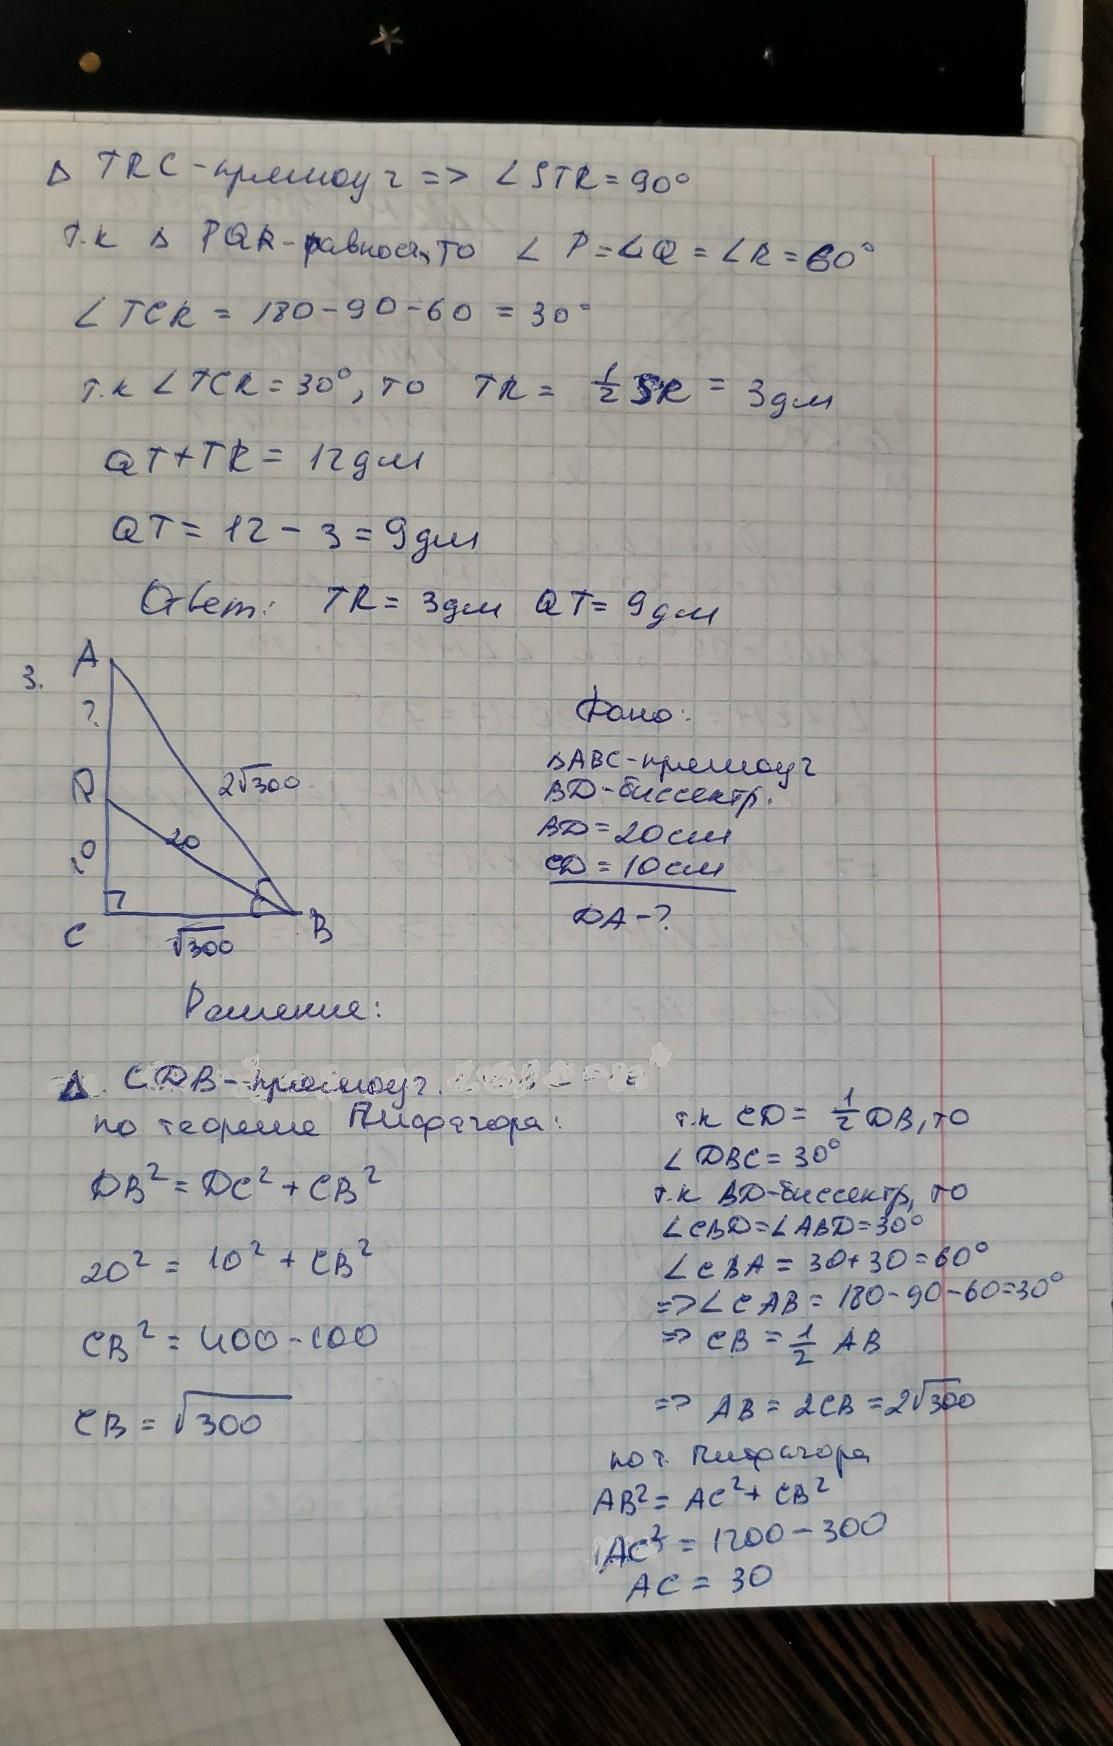 Δ TRC - прямоуг => ∠STR = 90°
т.к Δ PQR - равнос, то ∠P = ∠Q = ∠R = 60°
∠TCR = 180 - 90 - 60 = 30°
т.к ∠TCR = 30°, то TR = 1/2 SR = 3дм
QT + TR = 12дм
QT = 12 - 3 = 9дм
Ответ: TR = 3дм QT = 9дм
3.
A
?
D
10
C
20
2√300
√300
B
Дано:
ΔABC - прямоуг
BD - биссектр.
BD = 20см
CD = 10см
DA - ?
Решение:
Δ CDB - прямоуг.
по теореме Пифагора:
DB² = DC² + CB²
20² = 10² + CB²
CB² = 400 - 100
CB = √300
т.к CD = 1/2 DB, то
∠DBC = 30°
т.к BD - биссектр, то
∠CBD = ∠ABD = 30°
∠CBA = 30 + 30 = 60°
=> ∠CAB = 180 - 90 - 60 = 30°
=> CB = 1/2 AB
=> AB = 2CB = 2√300
по т. Пифагора
AB² = AC² + CB²
AC² = 1200 - 300
AC = 30